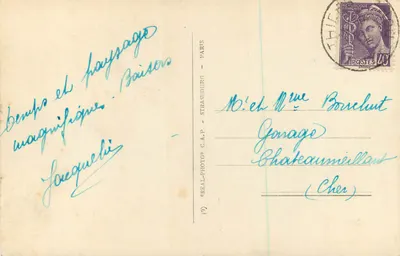 temps et paysage
magnifiques. Baisers
Jacqueline
(5) REAL-PHOTO C.A.P - STRASBOURG - PARIS
THIE
POSTES
40
M. et Mme Bouchut
Garage
Chateaumeillant
(Cher)